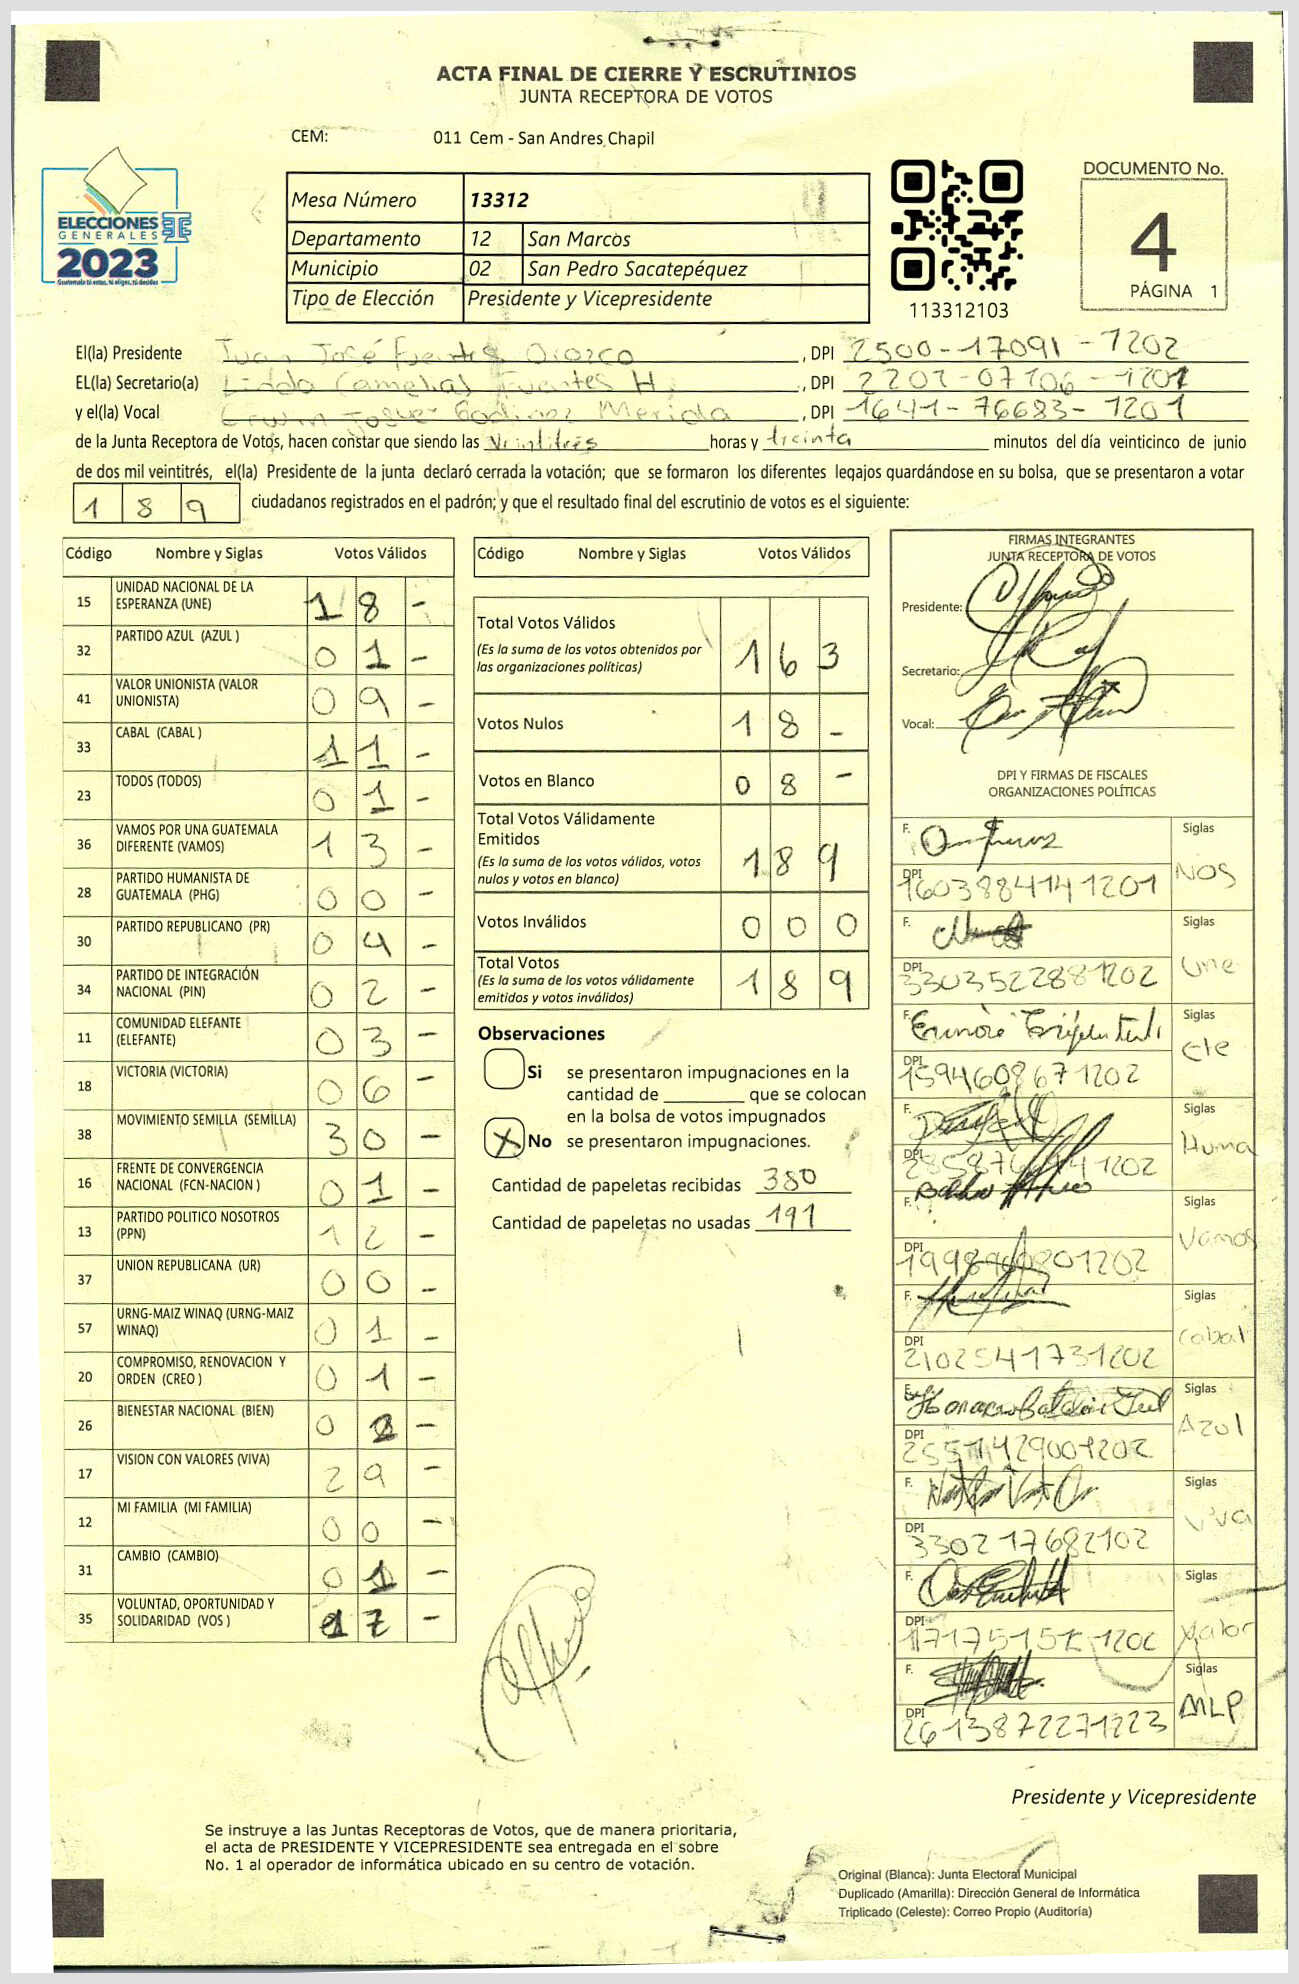 ACTA FINAL DE CIERRE Y ESCRUTINIOS
JUNTA RECEPTORA DE VOTOS
CEM: 011 Cem - San Andres Chapil
ELECCIONES
GENERALES
2023
Guatemala tú estas, tú eliges, tú decides
Mesa Número 13312
Departamento 12 San Marcos
Municipio 02 San Pedro Sacatepéquez
Tipo de Elección Presidente y Vicepresidente
113312103
DOCUMENTO No.
4
PÁGINA 1
El(la) Presidente Juan José Fuentes Orozco, DPI 2500-17091-1202
EL(la) Secretario(a) Fuentes H., DPI 2201-07106-1201
y el(la) Vocal Godinez Merida, DPI 1641-76683-1201
de la Junta Receptora de Votos, hacen constar que siendo las veintitrés horas y treinta minutos del día veinticinco de junio
de dos mil veintitrés, el(la) Presidente de la junta declaró cerrada la votación; que se formaron los diferentes legajos guardándose en su bolsa, que se presentaron a votar
189 ciudadanos registrados en el padrón; y que el resultado final del escrutinio de votos es el siguiente:
Código Nombre y Siglas Votos Válidos
15 UNIDAD NACIONAL DE LA ESPERANZA (UNE) 18 -
32 PARTIDO AZUL (AZUL ) 01 -
41 VALOR UNIONISTA (VALOR UNIONISTA) 09 -
33 CABAL (CABAL ) 11 -
23 TODOS (TODOS) 01 -
36 VAMOS POR UNA GUATEMALA DIFERENTE (VAMOS) 13 -
28 PARTIDO HUMANISTA DE GUATEMALA (PHG) 00 -
30 PARTIDO REPUBLICANO (PR) 04 -
34 PARTIDO DE INTEGRACIÓN NACIONAL (PIN) 02 -
11 COMUNIDAD ELEFANTE (ELEFANTE) 03 -
18 VICTORIA (VICTORIA) 06 -
38 MOVIMIENTO SEMILLA (SEMILLA) 30 -
16 FRENTE DE CONVERGENCIA NACIONAL (FCN-NACION ) 01 -
13 PARTIDO POLITICO NOSOTROS (PPN) 12 -
37 UNION REPUBLICANA (UR) 00 -
57 URNG-MAIZ WINAQ (URNG-MAIZ WINAQ) 01 -
20 COMPROMISO, RENOVACION Y ORDEN (CREO ) 01 -
26 BIENESTAR NACIONAL (BIEN) 0 -
17 VISION CON VALORES (VIVA) 29 -
12 MI FAMILIA (MI FAMILIA) 00 -
31 CAMBIO (CAMBIO) 01 -
35 VOLUNTAD, OPORTUNIDAD Y SOLIDARIDAD (VOS ) 17 -
Código Nombre y Siglas Votos Válidos
Total Votos Válidos 163
(Es la suma de los votos obtenidos por
las organizaciones políticas)
Votos Nulos 18 -
Votos en Blanco 08 -
Total Votos Válidamente
Emitidos 189
(Es la suma de los votos válidos, votos
nulos y votos en blanco)
Votos Inválidos 000
Total Votos 189
(Es la suma de los votos válidamente
emitidos y votos inválidos)
Observaciones
Si se presentaron impugnaciones en la
cantidad de ________ que se colocan
en la bolsa de votos impugnados
X No se presentaron impugnaciones.
Cantidad de papeletas recibidas 380
Cantidad de papeletas no usadas 191
FIRMAS INTEGRANTES
JUNTA RECEPTORA DE VOTOS
Presidente:
Secretario:
Vocal:
DPI Y FIRMAS DE FISCALES
ORGANIZACIONES POLÍTICAS
F. Siglas NOS
DPI 1603884141201
F. Siglas Une
DPI 3303522881202
F. Siglas Ele
DPI 1594608671202
F. Siglas Huma
DPI
F. Siglas Vamos
DPI
F. Siglas Cabal
DPI 2102541731202
F. Siglas Azul
DPI
F. Siglas Viva
DPI 330217682102
F. Siglas Valor
DPI
F. Siglas MLP
DPI 2613872271223
Presidente y Vicepresidente
Se instruye a las Juntas Receptoras de Votos, que de manera prioritaria,
el acta de PRESIDENTE Y VICEPRESIDENTE sea entregada en el sobre
No. 1 al operador de informática ubicado en su centro de votación.
Original (Blanca): Junta Electoral Municipal
Duplicado (Amarilla): Dirección General de Informática
Triplicado (Celeste): Correo Propio (Auditoría)